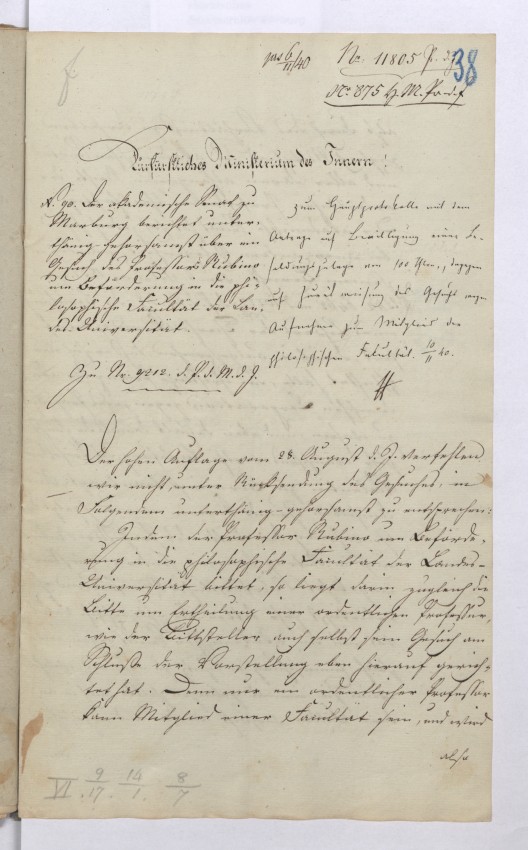 pras 6/11/40
Nr. 11805 P. d. J.
38
Nr. 875 H. M. Pr. d. J.
Kurfürstliches Ministerium des Innern!
N. 90. Der akademische Senat zu
Marburg berichtet unter-
thänig-gehorsamst über ein
Gesuch des Professors Rubino
um Beförderung in die phi-
losophische Facultät der Lan-
des-Universität.
Zu Nr. 9212. d. P. d. M. d. J.
zum Hauptprotokolle mit dem
Antrage auf Bewilligung einer Be-
soldungszulage von 100 Thlrn., dagegen
auf Zurückweisung des Gesuchs wegen
Aufnahme zum Mitgliede der
philosophischen Fakultät. 10/11 40.
Der hohen Auflage vom 28. August d. J. verfehlen
wir nicht, unter Rücksendung des Gesuches, in
Folgendem unterthänig-gehorsamst zu entsprechen:
Indem der Professor Rubino um Beförde-
rung in die philosophische Facultät der Landes-
Universität bittet, so liegt darin zugleich die
Bitte um Ertheilung einer ordentlichen Professur,
wie der Bittsteller auch selbst sein Gesuch am
Schluße der Vorstellung eben hierauf gerich-
tet hat. Denn nur ein ordentlicher Professor
kann Mitglied einer Facultät sein, und wird
also
VI 9/17. 14/1. 8/7